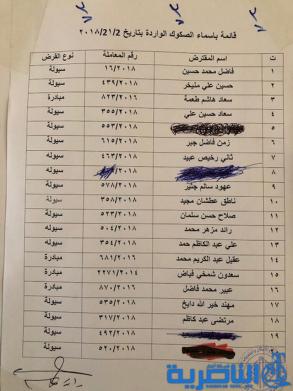 قائمة باسماء الصكوك الواردة بتاريخ ٢٠١٨/21/2
ت اسم المقترض رقم المعاملة نوع القرض
١ فاضل محمد حسين ١٦/٢٠١٨ سيولة
٢ حسين علي مليخر ٤٣٩/٢٠١٨ سيولة
٣ سعاد هاشم طعمة ٨٢٣/٢٠١٦ مبادرة
٤ ٥٥٣/٢٠١٨ سيولة
٥
٦ زمن فاضل جبر ٦١٥/٢٠١٨ سيولة
٧ ثاني رخيص عبيد ٤٦٣/٢٠١٨ سيولة
٨ /٢٠١٨ سيولة
٩ عهود سالم ٥٧٨/٢٠١٨ سيولة
١٠ ناطق عطشان مجيد ٣٥٨/٢٠١٨ سيولة
١١ صلاح حسن سلمان ٥٢٣/٢٠١٨ سيولة
١٢ رائد مزهر محمد ٥٠٤/٢٠١٨ سيولة
١٣ علي عبد الكاظم حمد ٣٥٤/٢٠١٨ سيولة
١٤ عقيل عبد الكريم محمد ٦٨١/٢٠١٦ مبادرة
١٥ سعدون شمخي فياض ٢٢٧١/٢٠١٤ مبادرة
١٦ عبير محمد فاضل ٨٧٠/٢٠١٦ مبادرة
١٧ مهند خير الله دايخ ٥٣٥/٢٠١٨ سيولة
١٨ مرتضى عبد كاظم ٣١٧/٢٠١٨ سيولة
١٩ ٤٩٢/٢٠١٨ سيولة
٢٠ ٥٢٠/٢٠١٨ سيولة
الناصرية